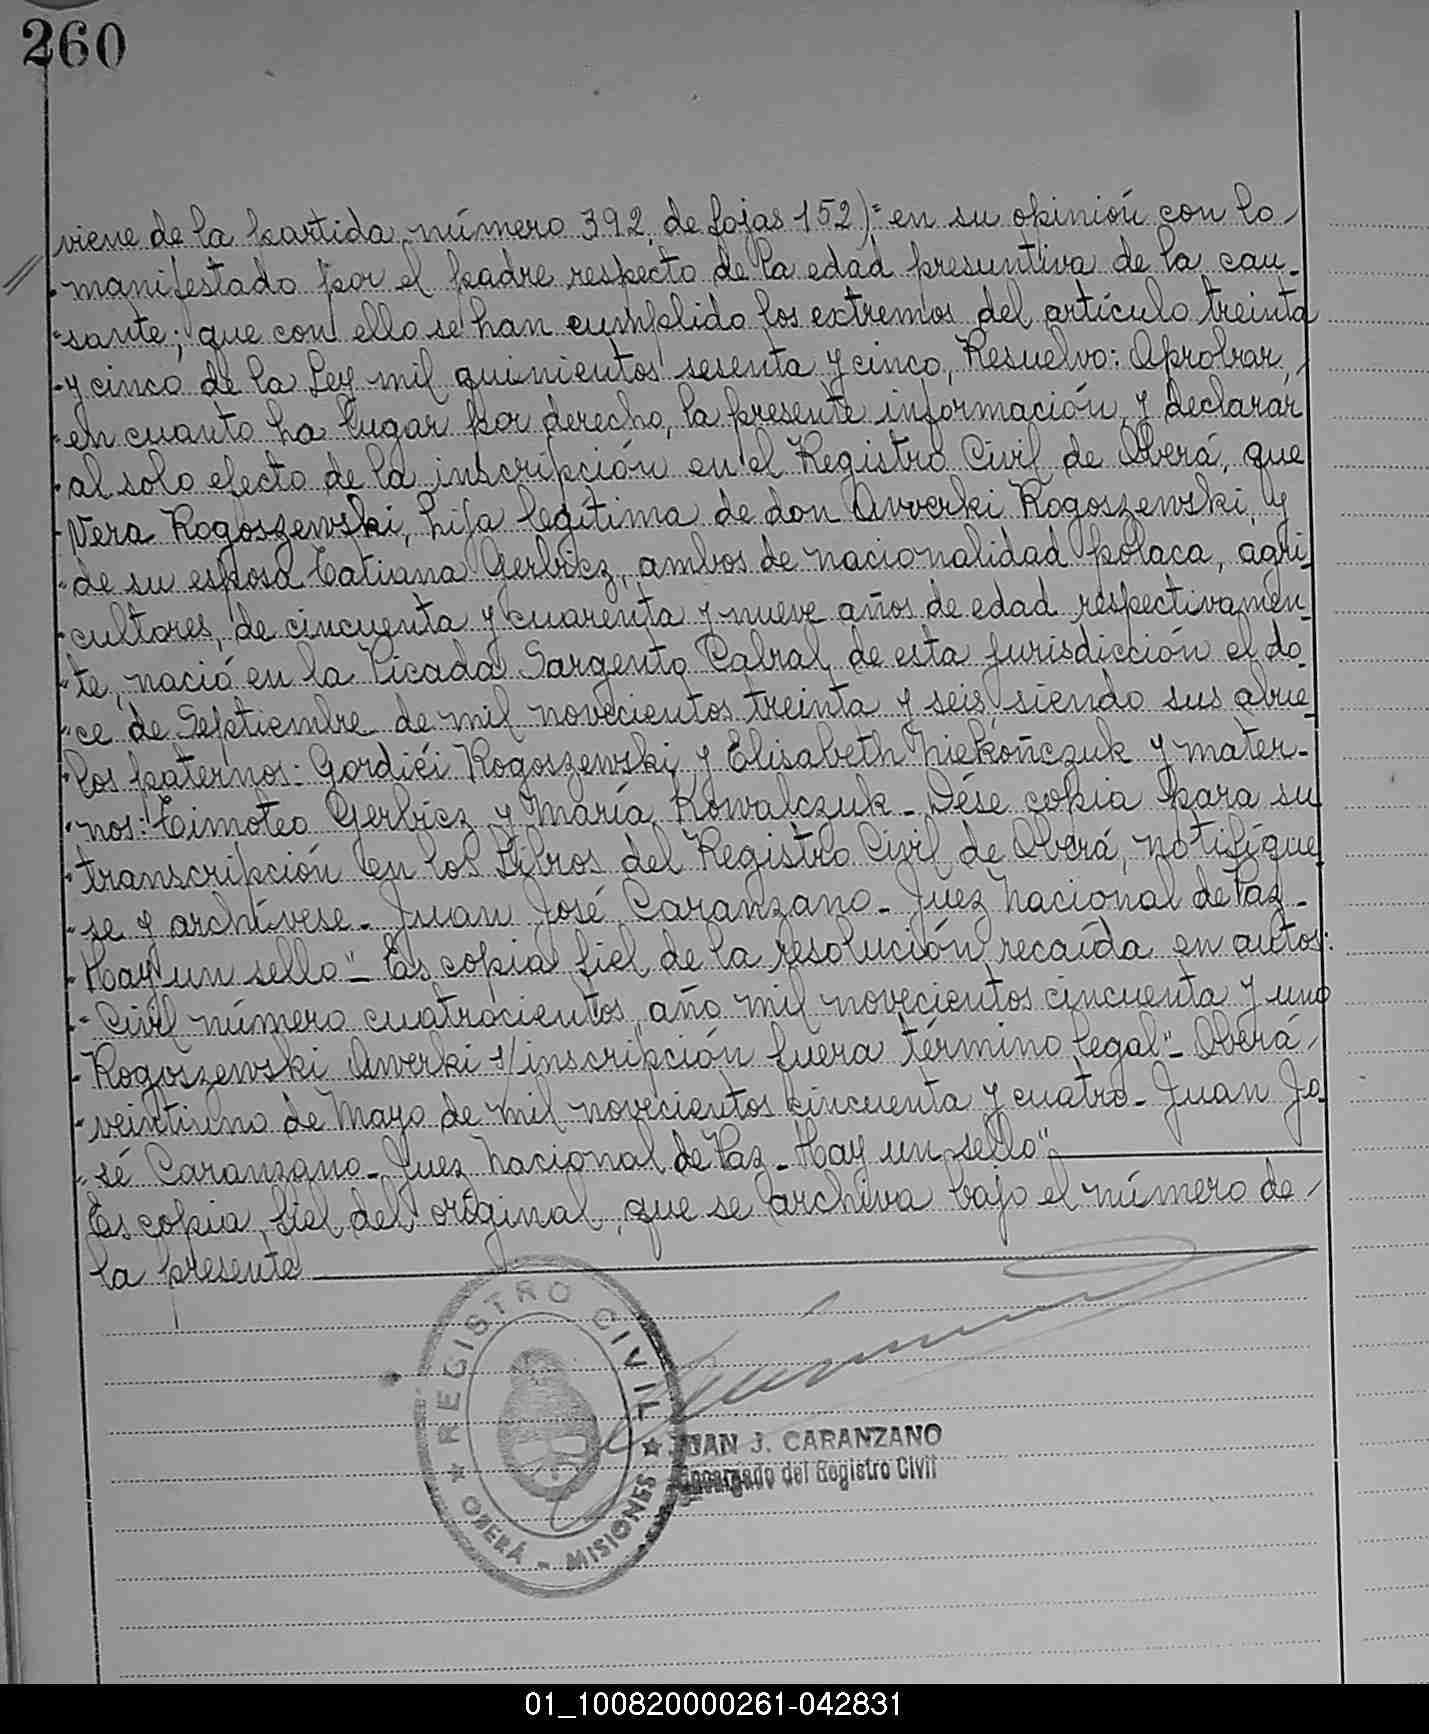 260
viene de la partida número 392, de fojas 152)= en su opinión con lo
manifestado por el padre respecto de la edad presuntiva de la cau-
sante; que con ello se han cumplido los extremos del artículo treinta
y cinco de la Ley mil quinientos sesenta y cinco, Resuelvo: Aprobar,
en cuanto ha lugar por derecho, la presente información, y declarar
al solo efecto de la inscripción en el Registro Civil de Oberá, que
Vera Rogoszewski, hija legítima de don Awerki Rogoszewski, y
de su esposa Tatiana Gerbicz, ambos de nacionalidad polaca, agri-
cultores, de cincuenta y cuarenta y nueve años de edad respectivamen
te, nació en la Picada Sargento Cabral, de esta jurisdicción el do-
ce de Septiembre de mil novecientos treinta y seis, siendo sus abue-
los paternos: Gordiéi Rogoszewski y Elisabeth Niekończuk y mater-
nos: Timoteo Gerbicz y María Kowalczuk - Dése copia para su
transcripción en los Libros del Registro Civil de Oberá, notifíque
se y archívese - Juan José Caranzano - Juez Nacional de Paz -
Hay un sello" - Es copia fiel de la resolución recaída en autos:
"Civil número cuatrocientos, año mil novecientos cincuenta y uno
Rogoszewski Awerki s/ inscripción fuera término legal" - Oberá,
veintiuno de Mayo de mil novecientos cincuenta y cuatro - Juan Jo-
sé Caranzano - Juez Nacional de Paz - Hay un sello"
Es copia fiel del original, que se archiva bajo el número de
la presente
REGISTRO CIVIL
OBERÁ - MISIONES
JUAN J. CARANZANO
Encargado del Registro Civil
01_100820000261-042831